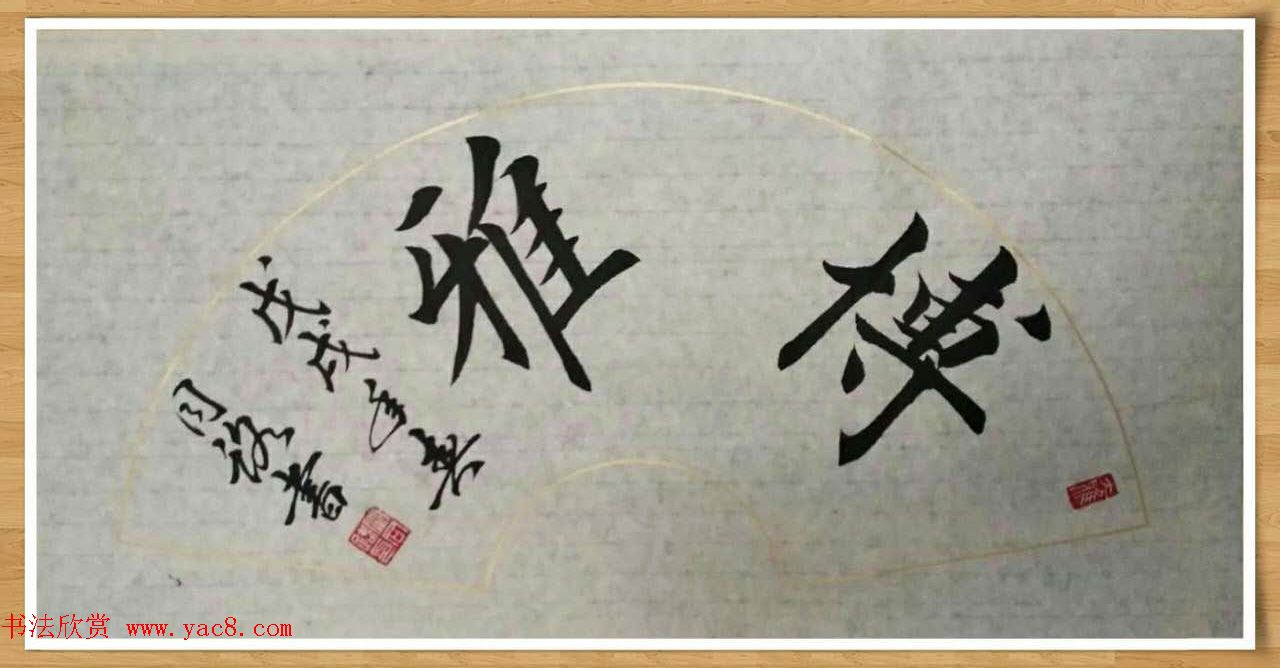 博雅
戊戌年
周
書
书法欣赏 www.yac8.com